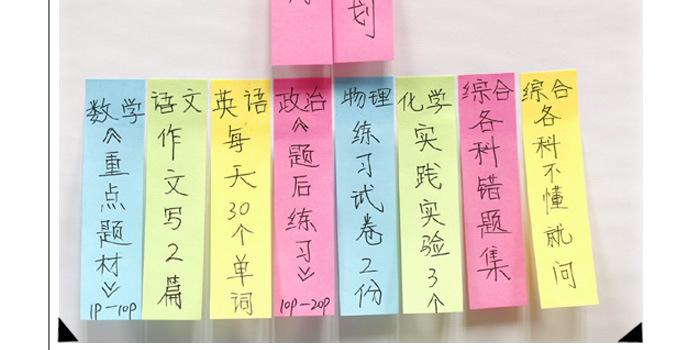 划
数学
《重点题材》
1P-10P
语文
作文写2篇
英语
每天30个单词
政治
《题后练习》
10P-20P
物理
练习试卷2份
化学
实践实验3个
综合
各科错题集
综合
各科不懂就问